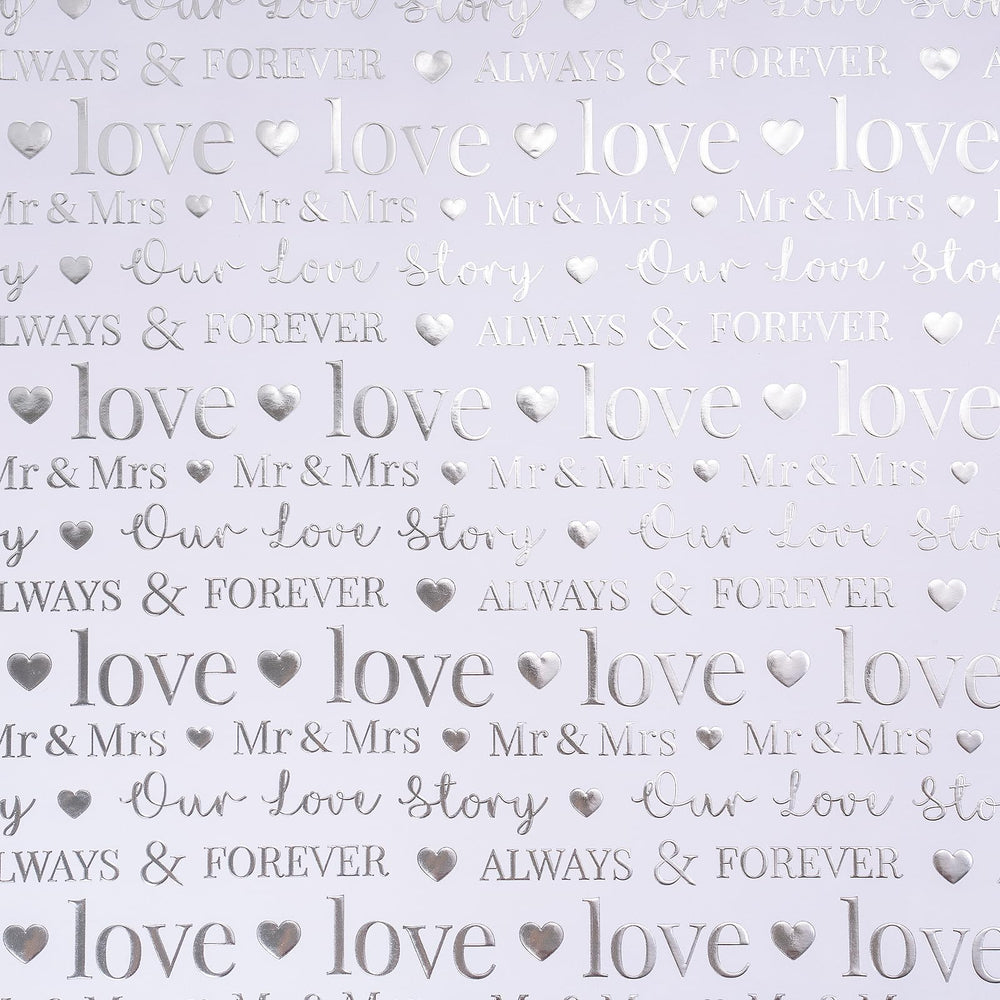 y Our Love Story Our Love Story
LWAYS & FOREVER ALWAYS & FOREVER A
love love love love
Mr & Mrs Mr & Mrs Mr & Mrs Mr & Mrs
y Our Love Story Our Love Sto
ALWAYS & FOREVER ALWAYS & FOREVER A
love love love love
Mr & Mrs Mr & Mrs Mr & Mrs Mr & Mrs
y Our Love Story Our Love Sto
LWAYS & FOREVER ALWAYS & FOREVER A
love love love love
Mr & Mrs Mr & Mrs Mr & Mrs Mr & Mrs
y Our Love Story Our Love Sto
ALWAYS & FOREVER ALWAYS & FOREVER
love love love love
Mr & Mrs Mr & Mrs Mr & Mrs Mr & Mrs